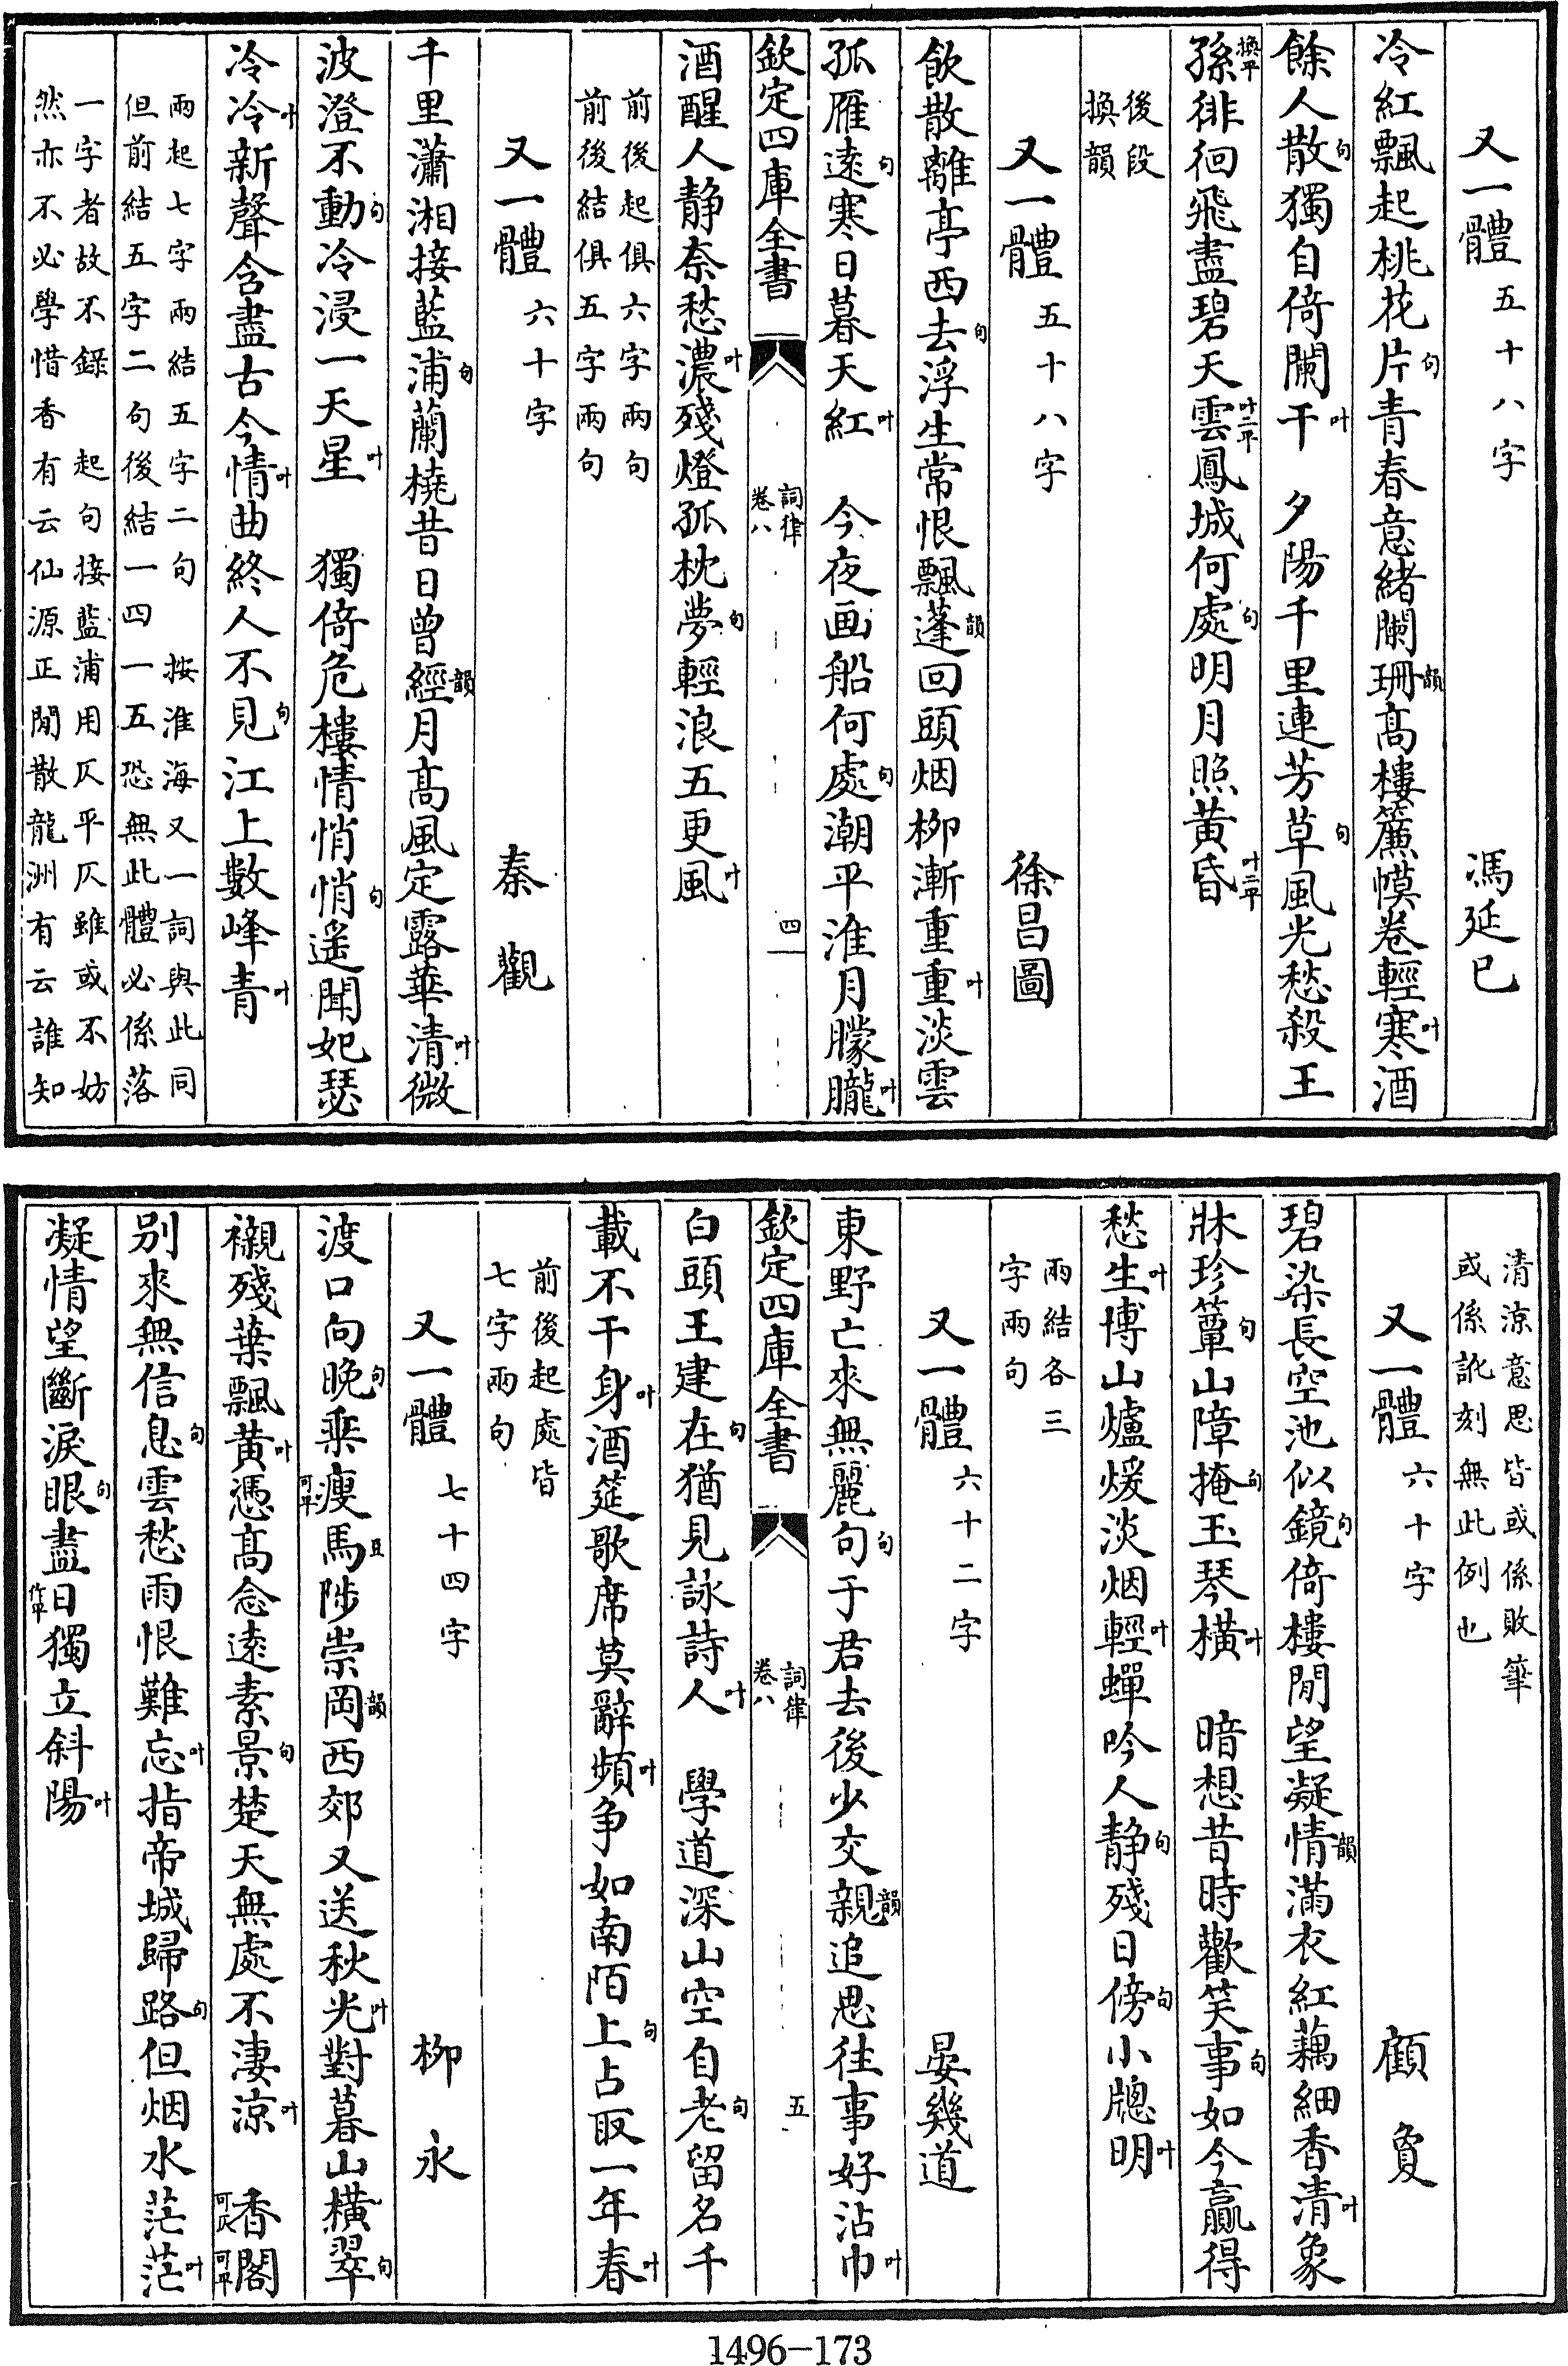 又一體 五十八字 馮延巳
冷紅飄起桃花片句青春意緒闌珊韻高樓簾幙卷輕寒叶酒
餘人散句獨自倚闌干叶 夕陽千里連芳草句風光愁殺王
孫換平徘徊飛盡碧天雲叶二平鳳城何處句明月照黃昏叶二平
後段
換韻
又一體 五十八字 徐昌圖
飲散離亭西去句浮生常恨飄蓬韻回頭烟柳漸重重叶淡雲
孤雁遠句寒日暮天紅叶 今夜画船何處句潮平淮月朦朧叶
欽定四庫全書 詞律 卷八 四
酒醒人靜奈愁濃叶殘燈孤枕夢句輕浪五更風叶
前後起俱六字兩句
前後結俱五字兩句
又一體 六十字 秦觀
千里瀟湘接藍浦句蘭橈昔日曾經韻月高風定露華清叶微
波澄不動句冷浸一天星叶 獨倚危樓情悄悄句遙聞妃瑟
冷冷叶新聲含盡古今情叶曲終人不見句江上數峰青叶
兩起七字兩結五字二句 按淮海又一詞與此同
但前結五字二句後結一四一五恐無此體必係落
一字者故不錄 起句接藍浦用仄平仄雖或不妨
然亦不必學惜香有云仙源正閒散龍洲有云誰知
清涼意思皆或係敗筆
或係訛刻無此例也
又一體 六十字 顧敻
碧染長空池似鏡句倚樓閒望凝情韻滿衣紅藕細香清叶象
牀珍簟句山障掩句玉琴橫叶 暗想昔時歡笑事句如今贏得
愁生叶博山爐煖淡烟輕叶蟬吟人靜句殘日傍句小牕明叶
兩結各三
字兩句
又一體 六十二字 晏幾道
東野亡來無麗句句于君去後少交親韻追思往事好沾巾叶
欽定四庫全書 詞律 卷八 五
白頭王建在句猶見詠詩人叶 學道深山空自老句留名千
載不干身叶酒筵歌席莫辭頻叶爭如南陌上句占取一年春叶
前後起處皆
七字兩句
又一體 七十四字 柳永
渡口向晚句乘瘦可平馬豆陟崇岡韻西郊又送秋光叶對暮山橫翠句
襯殘葉飄黃叶憑高念遠素景句楚天無處不淒涼叶 香可仄閣可平
別來無信息句雲愁雨恨難忘叶指帝城歸路句但烟水茫茫叶
凝情望斷淚眼句盡日作平獨立斜陽叶
1496-173